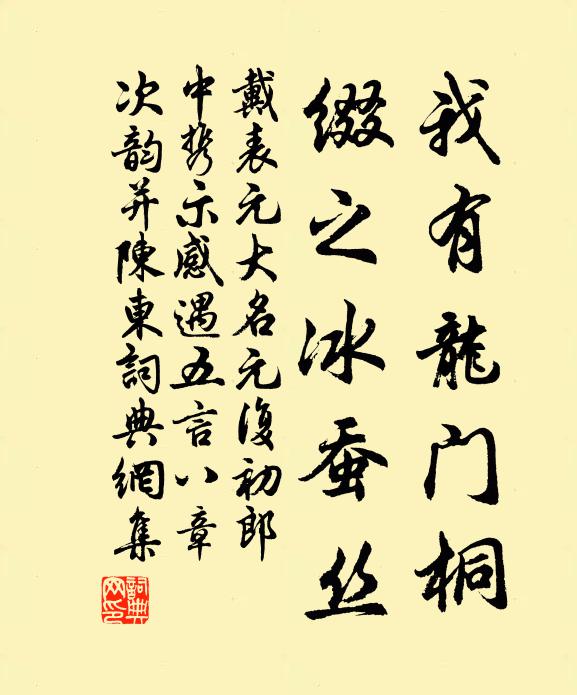 我有龍门桐
缀之冰蚕丝
戴表元大名元復初郎
中携示感遇五言八章
次韵并陳東詞典網集
詞典网印